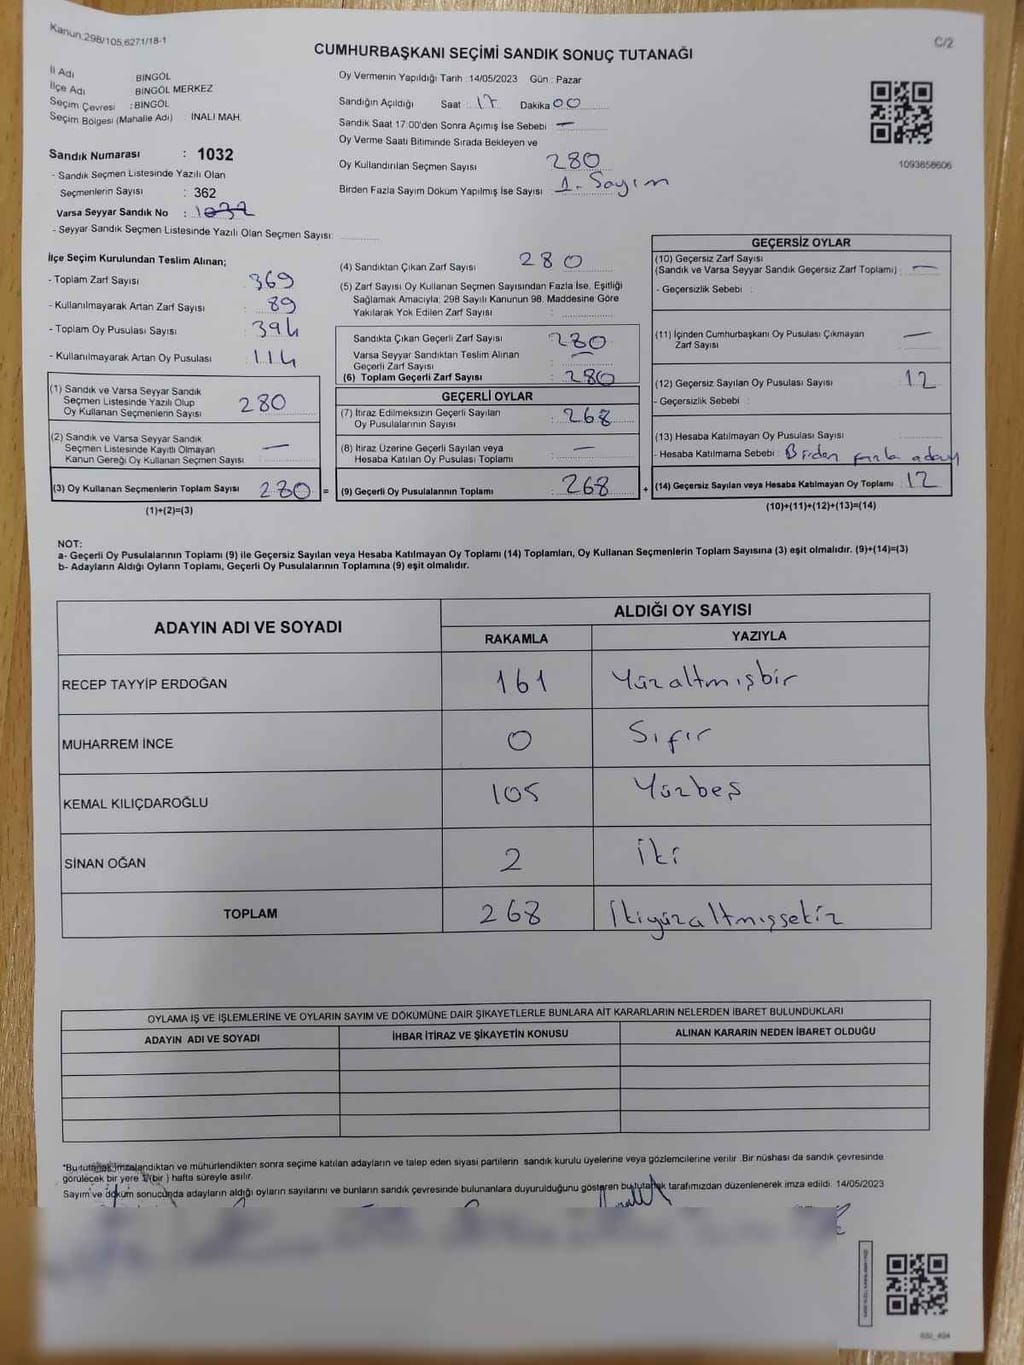 Kanun:298/105,6271/18-1
C/2
CUMHURBAŞKANI SEÇİMİ SANDIK SONUÇ TUTANAĞI
İl Adı BİNGÖL
İlçe Adı BİNGÖL MERKEZ
Seçim Çevresi : BİNGÖL
Seçim Bölgesi (Mahalle Adı) : İNALI MAH.
Sandık Numarası : 1032
- Sandık Seçmen Listesinde Yazılı Olan
Seçmenlerin Sayısı : 362
Varsa Seyyar Sandık No : 1032
- Seyyar Sandık Seçmen Listesinde Yazılı Olan Seçmen Sayısı:
Oy Vermenin Yapıldığı Tarih :14/05/2023 Gün : Pazar
Sandığın Açıldığı Saat : 17 Dakika 00
Sandık Saat 17:00'den Sonra Açımış İse Sebebi : —
Oy Verme Saati Bitiminde Sırada Bekleyen ve
Oy Kullandırılan Seçmen Sayısı 280
Birden Fazla Sayım Döküm Yapılmış İse Sayısı : 1. Sayım
1093858606
İlçe Seçim Kurulundan Teslim Alınan;
- Toplam Zarf Sayısı : 369
- Kullanılmayarak Artan Zarf Sayısı : 89
- Toplam Oy Pusulası Sayısı : 394
- Kullanılmayarak Artan Oy Pusulası : 114
(1) Sandık ve Varsa Seyyar Sandık
Seçmen Listesinde Yazılı Olup
Oy Kullanan Seçmenlerin Sayısı 280
(2) Sandık ve Varsa Seyyar Sandık
Seçmen Listesinde Kayıtlı Olmayan
Kanun Gereği Oy Kullanan Seçmen Sayısı : —
(3) Oy Kullanan Seçmenlerin Toplam Sayısı 280 =
(1)+(2)=(3)
(4) Sandıktan Çıkan Zarf Sayısı : 280
(5) Zarf Sayısı Oy Kullanan Seçmen Sayısından Fazla İse, Eşitliği
Sağlamak Amacıyla; 298 Sayılı Kanunun 98. Maddesine Göre
Yakılarak Yok Edilen Zarf Sayısı :
Sandıkta Çıkan Geçerli Zarf Sayısı : 280
Varsa Seyyar Sandıktan Teslim Alınan
Geçerli Zarf Sayısı : —
(6) Toplam Geçerli Zarf Sayısı : 280
GEÇERLİ OYLAR
(7) İtiraz Edilmeksizin Geçerli Sayılan
Oy Pusulalarının Sayısı : 268
(8) İtiraz Üzerine Geçerli Sayılan veya
Hesaba Katılan Oy Pusulası Toplamı : —
(9) Geçerli Oy Pusulalarının Toplamı : 268 +
GEÇERSİZ OYLAR
(10) Geçersiz Zarf Sayısı
(Sandık ve Varsa Seyyar Sandık Geçersiz Zarf Toplamı) : —
- Geçersizlik Sebebi :
(11) İçinden Cumhurbaşkanı Oy Pusulası Çıkmayan
Zarf Sayısı : —
(12) Geçersiz Sayılan Oy Pusulası Sayısı : 12
- Geçersizlik Sebebi :
(13) Hesaba Katılmayan Oy Pusulası Sayısı :
- Hesaba Katılmama Sebebi : Birden fazla aday
(14) Geçersiz Sayılan veya Hesaba Katılmayan Oy Toplamı : 12
(10)+(11)+(12)+(13)=(14)
NOT:
a- Geçerli Oy Pusulalarının Toplamı (9) ile Geçersiz Sayılan veya Hesaba Katılmayan Oy Toplamı (14) Toplamları, Oy Kullanan Seçmenlerin Toplam Sayısına (3) eşit olmalıdır. (9)+(14)=(3)
b- Adayların Aldığı Oyların Toplamı, Geçerli Oy Pusulalarının Toplamına (9) eşit olmalıdır.
ADAYIN ADI VE SOYADI
ALDIĞI OY SAYISI
RAKAMLA YAZIYLA
RECEP TAYYİP ERDOĞAN 161 Yüzaltmışbir
MUHARREM İNCE 0 Sıfır
KEMAL KILIÇDAROĞLU 105 Yüzbeş
SİNAN OĞAN 2 İki
TOPLAM 268 İkiyüzaltmışsekiz
OYLAMA İŞ VE İŞLEMLERİNE VE OYLARIN SAYIM VE DÖKÜMÜNE DAİR ŞİKAYETLERLE BUNLARA AİT KARARLARIN NELERDEN İBARET BULUNDUKLARI
ADAYIN ADI VE SOYADI İHBAR İTİRAZ VE ŞİKAYETİN KONUSU ALINAN KARARIN NEDEN İBARET OLDUĞU
*Bu tutanak imzalandıktan ve mühürlendikten sonra seçime katılan adayların ve talep eden siyasi partilerin sandık kurulu üyelerine veya gözlemcilerine verilir .Bir nüshası da sandık çevresinde
görülecek bir yere 1(bir ) hafta süreyle asılır.
Sayım ve döküm sonucunda adayların aldığı oyların sayılarını ve bunların sandık çevresinde bulunanlara duyurulduğunu gösteren bu tutanak tarafımızdan düzenlenerek imza edildi. 14/05/2023